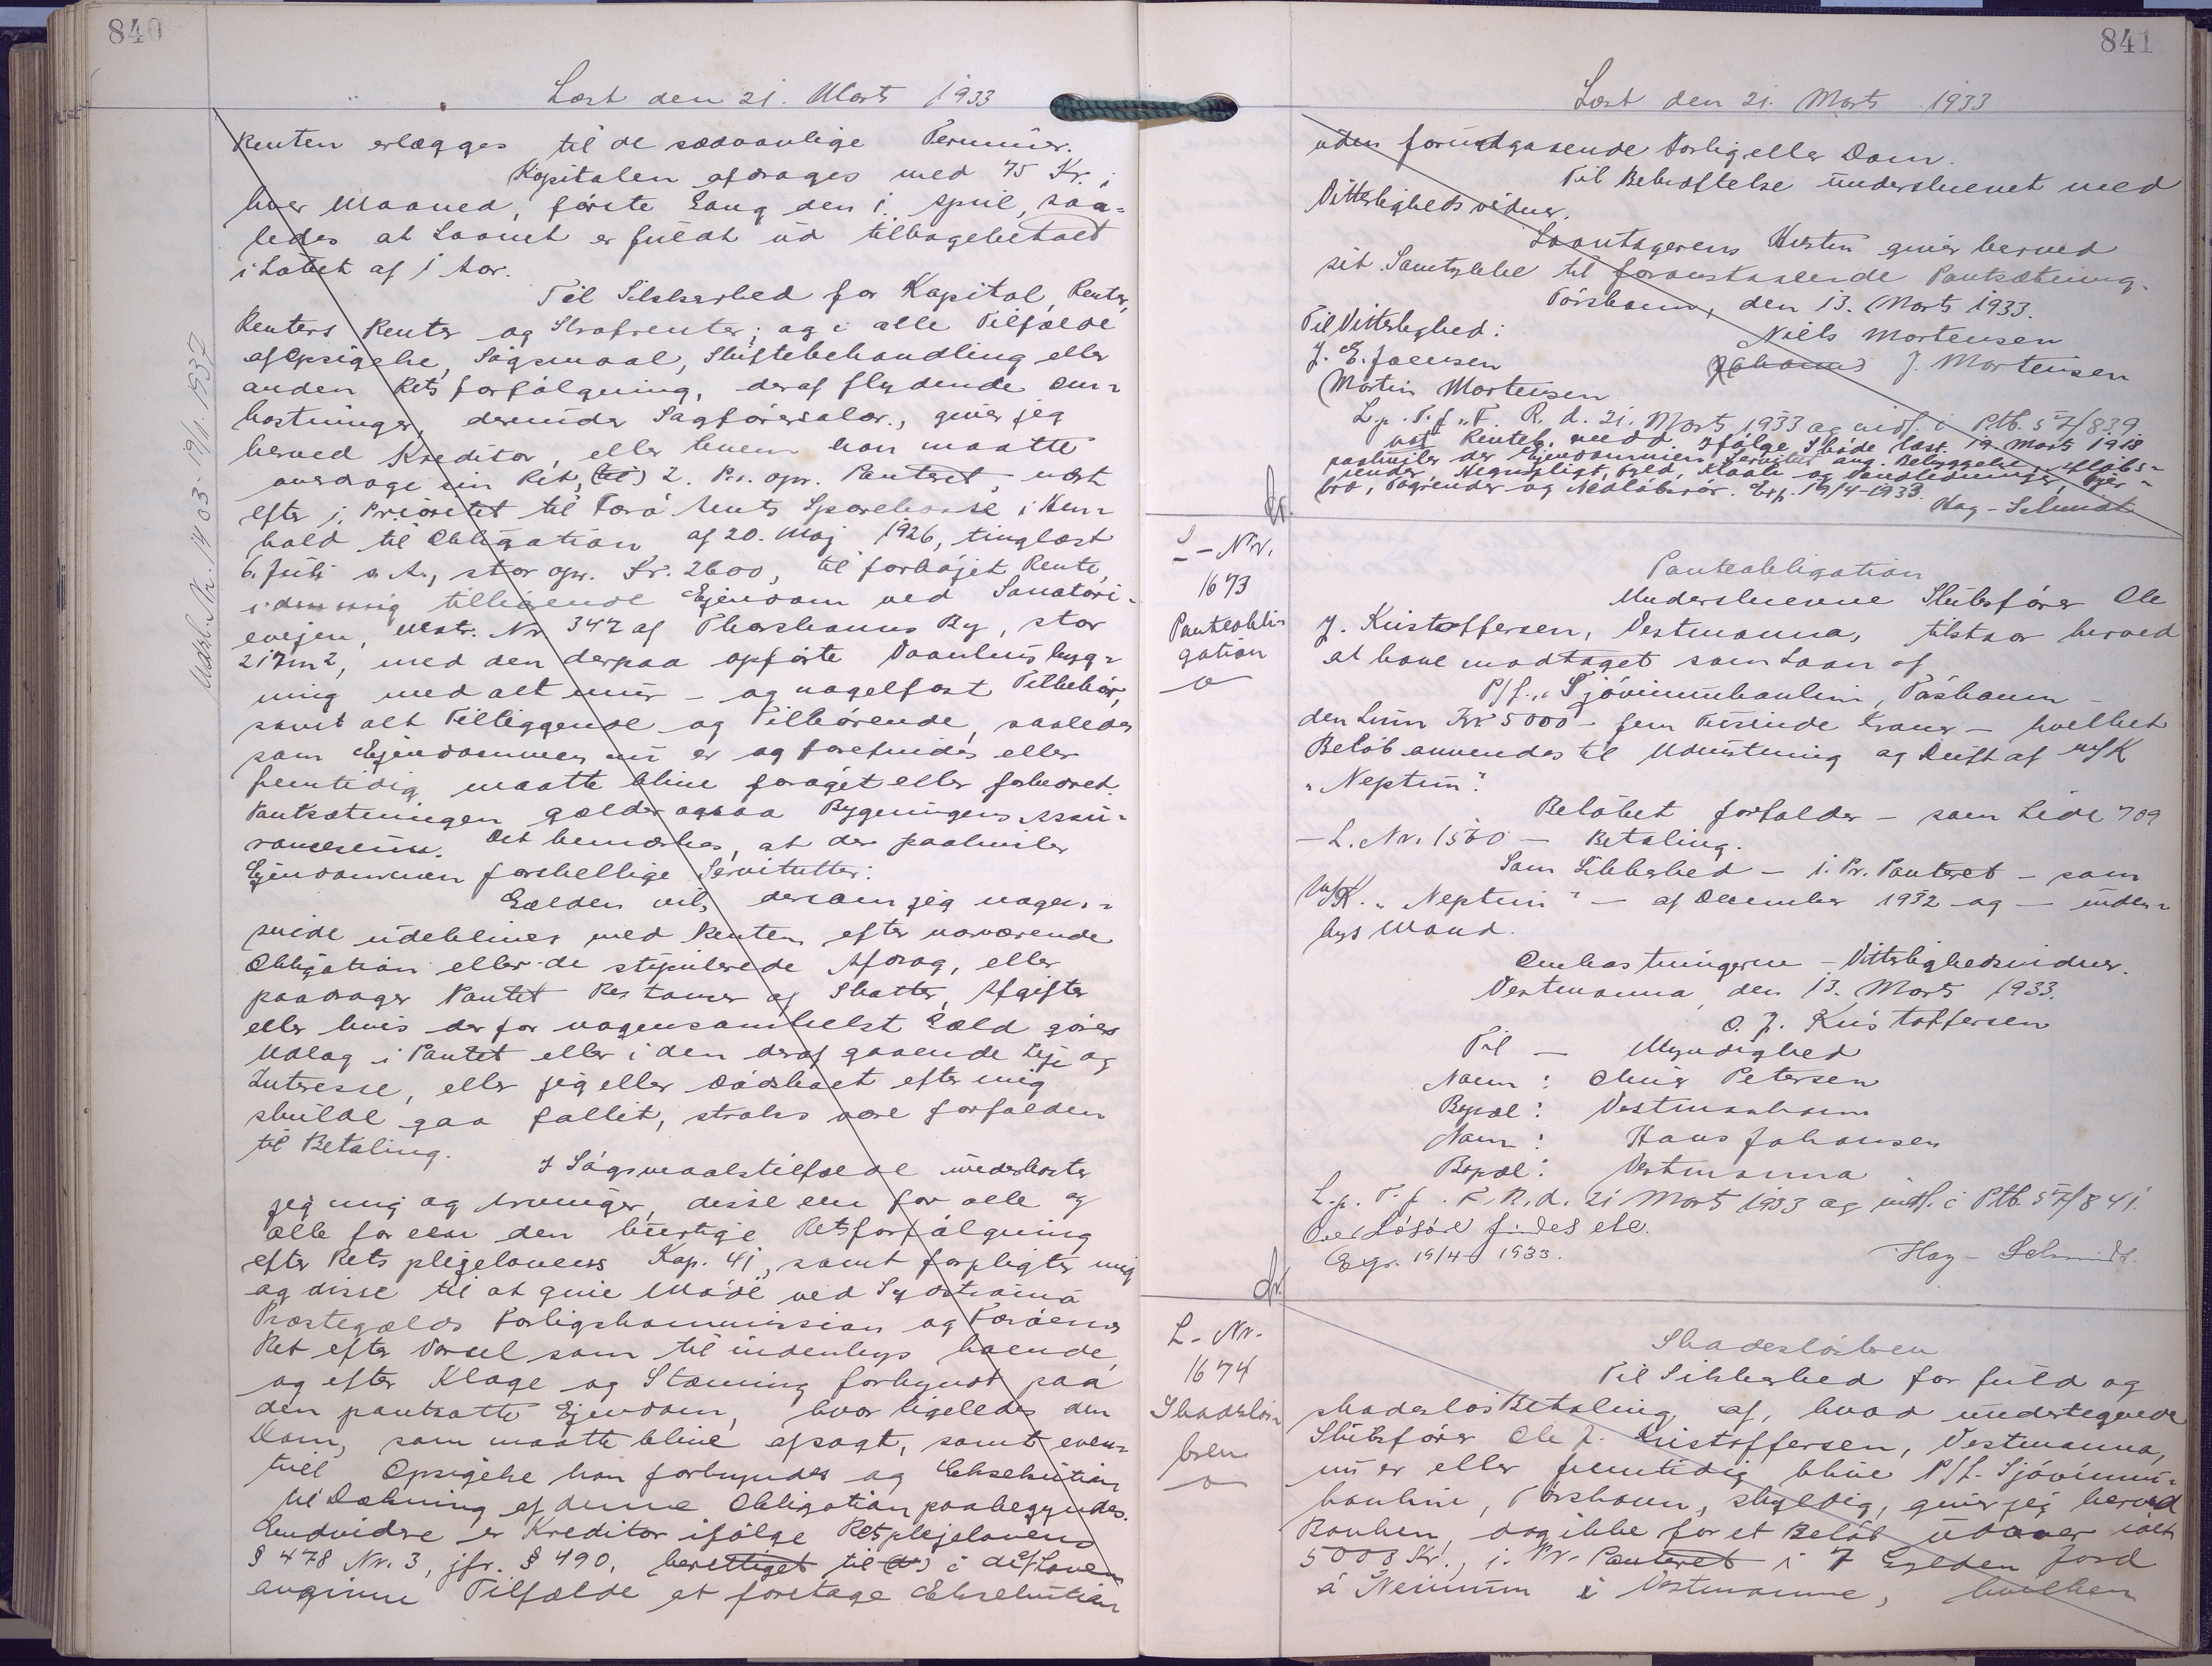 840
Læst den 21. Marts 1933
Renten erlægges til de sædvanlige Terminer.
Kapitalen afdrages med 75 Kr. i
hver Maaned, første Gang den 1. april, saa=
ledes at Laanet er fuldt ud tilbagebetalt
i Løbet af 1 Aar.
Til Sikkerhed for Kapital, Renter,
Renters Renter og Strafrenter, og i alle Tilfælde
af Opsigelse, Søgsmaal, Skiftebehandling eller
anden Retsforfølgning, deraf flydende Om=
kostninger, derunder Sagførersalær, giver jeg
herved Kreditor, eller hvem han maatte
overdrage sin Ret, (til) 2. Pr. opr. Panteret, næst
efter 1. Prioritet til Færø Amts Sparekasse i Hen=
hold til Obligation af 20. Maj 1926, tinglæst
6. Juli s. A., stor opr. Kr. 2600, til forhøjet Rente,
i den mig tilhørende Ejendom ved Sanatori=
evejen, Matr. Nr. 347 af Thorshavns By, stor
217m2, med den derpaa opførte Vaanhusbyg=
ning med alt mur- og nagelfast Tilbehør,
samt alt Tilliggende og Tilhørende, saaledes
som Ejendommen nu er og forefindes eller
fremtidig maatte blive forøget eller forbedret.
Pantsætningen gælder ogsaa Bygningens Assu=
rancesum. Det bemærkes, at der paahviler
Ejendommen forskellige Servitutter.
Gælden vil, dersom jeg nogen=
sinde udebliver med Renten efter nærværende
Obligation eller de stipulerede Afdrag, eller
paadrager Pantet Restancer af Skatter, Afgifter
eller hvis der for nogensomhelst Gæld gøres
Udlæg i Pantet eller i den deraf gaaende Leje og
Interesse, eller jeg eller Dødsboet efter mig
skulde gaa fallit, straks være forfalden
til Betaling.
I Søgsmaalstilfælde underkaster
jeg mig og Arvinger, disse een for alle og
alle for een den hurtige Retsforfølgning
efter Retsplejelovens Kap. 41, samt forpligter mig
og disse til at give Møde ved Syd Strømø
Præstegælds Forligskommission og Færøernes
Ret efter Varsel som til indenbys boende,
og efter Klage og Stævning forkyndt paa
den pantsatte Ejendom, hvor ligeledes den
Dom, som maatte blive afsagt, samt even=
tuel Opsigelse kan forkyndes og Eksekution
til Dækning af denne Obligation paabegyndes.
Endvidere er Kreditor ifølge Retsplejelovens
§ 478 Nr. 3, jfr. § 490, berettiget til (at) i de af Loven
angivne Tilfælde at foretage Eksekution
Udsl. Nr. 1403 - 19/11. 1937
841
Læst den 21. Marts 1933
uden forudgaaende Forlig eller Dom.
Til Bekræftelse underskrevet med
Vitterlighedsvidner.
Laantagerens Hustru giver herved
sit Samtykke til foranstaaende Pantsætning.
Tórshavn, den 13. Marts 1933.
Til Vitterlighed: Niels Mortensen
J. E. Joensen Johanne J. Mortensen
Martin Mortensen
L. p. T. f. F. R. d. 21. Marts 1933 og indf. i Ptb. 57/839.
Ifølge Skøde læst 19. Marts 1918
paahviler der Ejendommen Servitut ang. Bebyggelse, Afløbs=
render, Hegnspligt, Fyld, Kloak- og Vandledninger,
bro, Tagrender og Nedløbsrør. Exp. 19/4-1933.
Hag-Schmidt
L-Nr.
1673
Panteobli=
gation
Panteobligation
Underskrevne Skibsfører Ole
J. Kristoffersen, Vestmanna, tilstaar herved
at have modtaget som Laan af
P/f. "Sjóvinnubankin, Tórshavn -
den Sum Kr 5000 - fem Tusinde Kroner - hvilket
Beløb anvendes til Udrustning og Drift af M/K
"Neptun".
Beløbet forfalder - som Side 709
- L. Nr. 1560 - Betaling.
Som Sikkerhed - 1. Pr. Panteret - som
M/K. "Neptun" - af December 1932 og - inden=
bys Mand.
Omkostningerne - Vitterlighedsvidner.
Vestmanna, den 13. Marts 1933.
O. J. Kristoffersen
Til - Myndighed
Navn: Petersen
Bopæl: Vestmanhavn
Navn: Hans Johansen
Bopæl: Vestmanna
L. p. T. f. F. R. d. 21 Marts 1933 og indf. i Ptb. 57/841.
Over Løsøre findes ele.
Exp. 19/4-1933. Hag-Schmidt.
L-Nr.
1674
Skadesløs=
brev
Skadesløsbrev
Til Sikkerhed for fuld og
skadesløs Betaling af, hvad undertegnede
Skibsfører Ole J. Kristoffersen, Vestmanna,
nu er eller fremtidig blive P/f. Sjóvinnu=
bankin, Tórshavn, skyldig, giver jeg herved
Banken, dog ikke for et Beløb udover ialt
5000 Kr., 1. Pr. Panteret i 7 Gylden Jord
á Heimrum i Vestmanna, hvilken